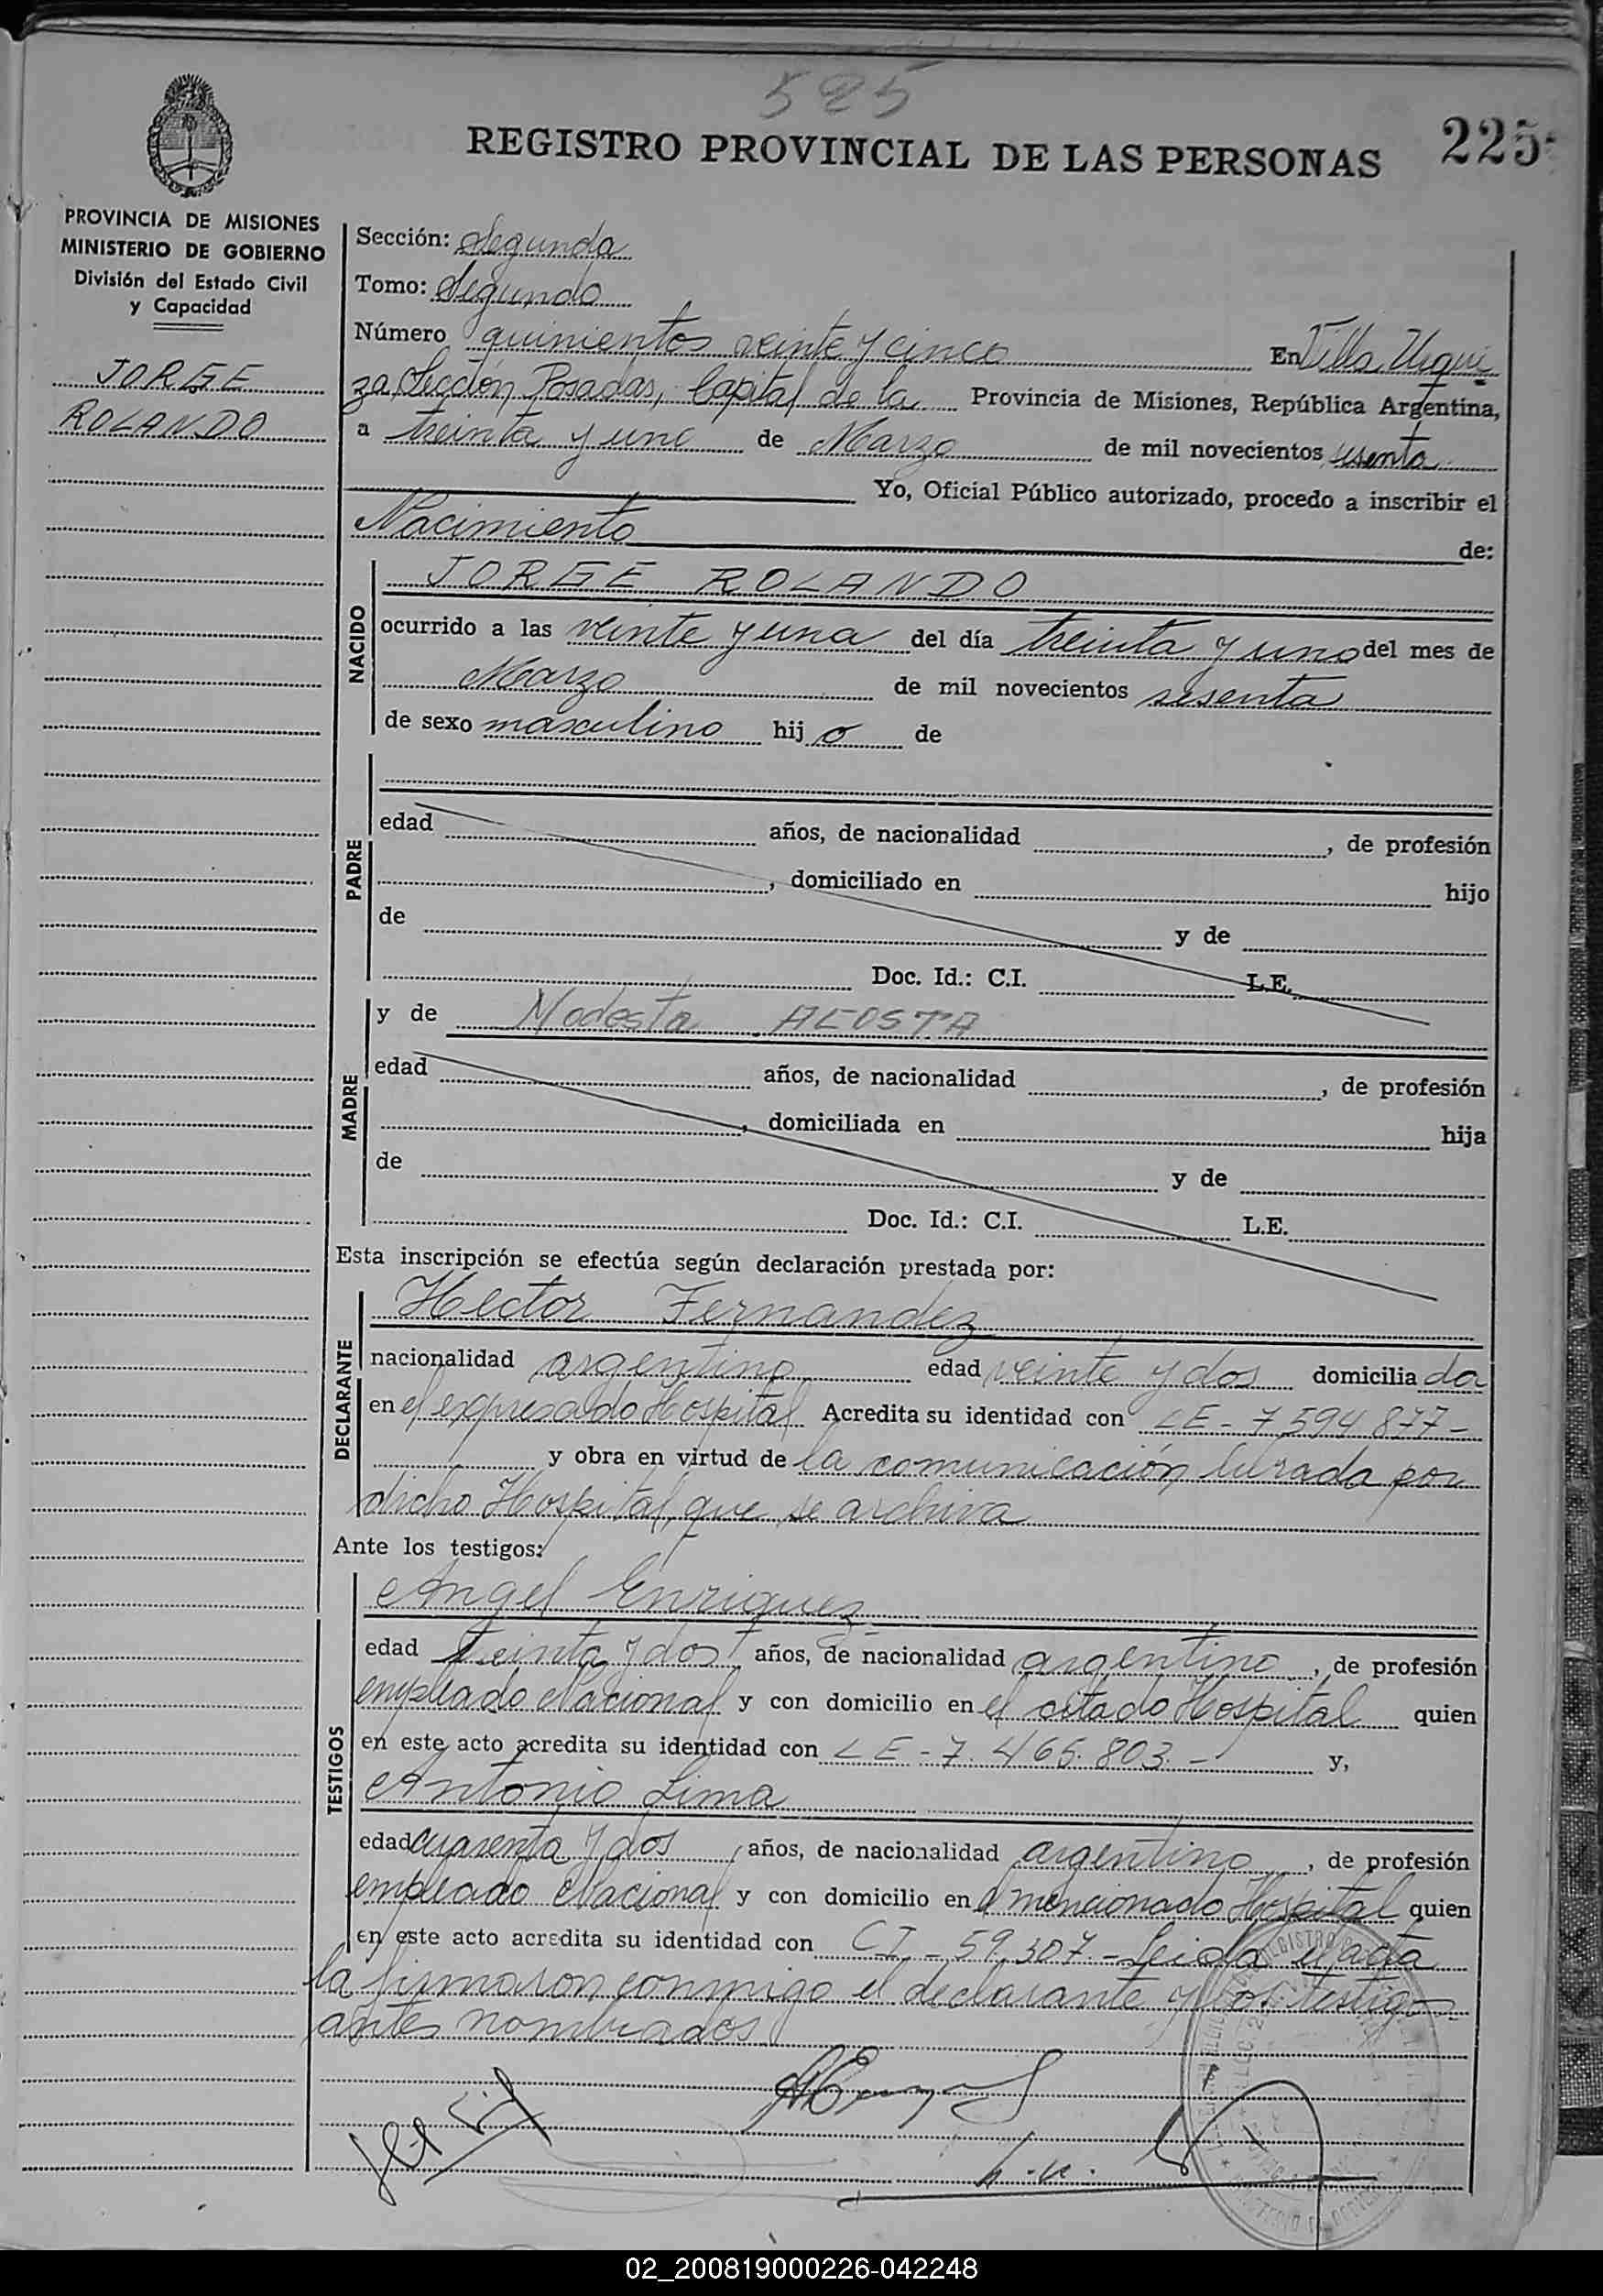 525
REGISTRO PROVINCIAL DE LAS PERSONAS
225
PROVINCIA DE MISIONES
MINISTERIO DE GOBIERNO
División del Estado Civil
y Capacidad
JORGE
ROLANDO
Sección: Segunda
Tomo: Segundo
Número quinientos veinte y cinco En Villa Urqui
za, Sección, Posadas, Capital de la Provincia de Misiones, República Argentina,
a treinta y uno de Marzo de mil novecientos sesenta
Yo, Oficial Público autorizado, procedo a inscribir el
Nacimiento de:
NACIDO
JORGE ROLANDO
ocurrido a las veinte y una del día treinta y uno del mes de
Marzo de mil novecientos sesenta
de sexo masculino hij o de
PADRE
edad años, de nacionalidad , de profesión
, domiciliado en hijo
de y de
Doc. Id.: C.I. L.E.
MADRE
y de Modesta ACOSTA
edad años, de nacionalidad , de profesión
, domiciliada en hija
de y de
Doc. Id.: C.I. L.E.
Esta inscripción se efectúa según declaración prestada por:
DECLARANTE
Hector Fernandez
nacionalidad argentino edad veinte y dos domicilia do
en el expresado Hospital Acredita su identidad con LE - 7 594 877 -
y obra en virtud de la comunicación librada por
dicho Hospital, que se archiva
Ante los testigos:
TESTIGOS
Angel Enriquez
edad treinta y dos años, de nacionalidad argentino , de profesión
empleado Nacional y con domicilio en el citado Hospital quien
en este acto acredita su identidad con LE - 7. 465. 803. - y,
Antonio Lima
edad cuarenta y dos años, de nacionalidad argentino , de profesión
empleado Nacional y con domicilio en el mencionado Hospital quien
en este acto acredita su identidad con CI - 59. 307 - Leida el acta
la firmaron conmigo el declarante y los testigos
antes nombrados
02_200819000226-042248